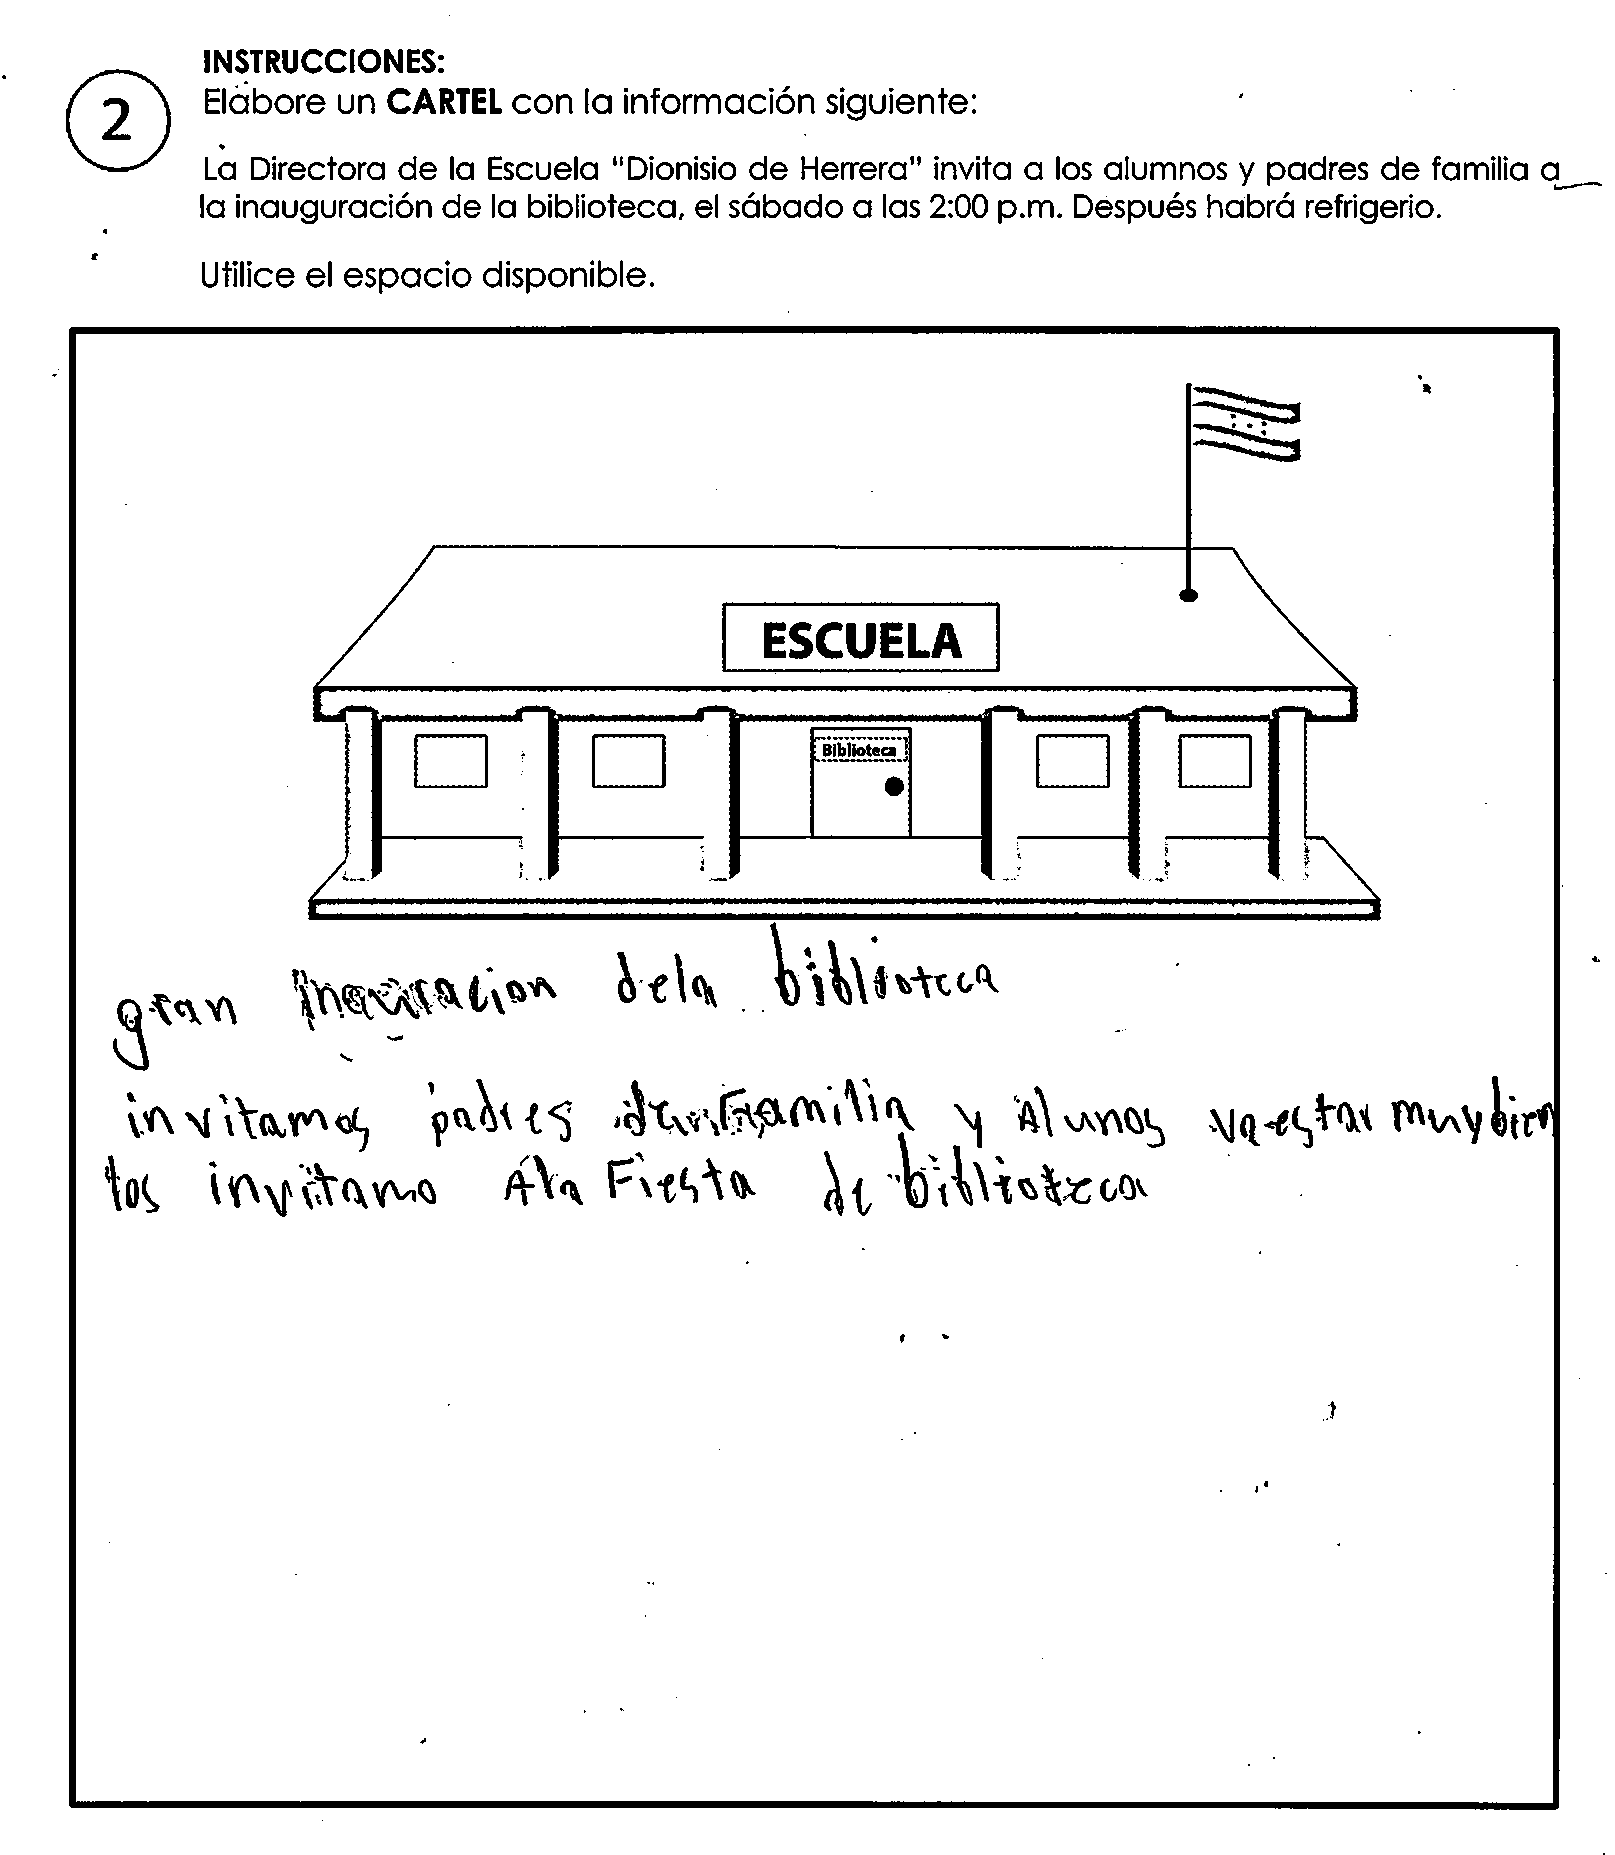 INSTRUCCIONES:
2
Elabore un CARTEL con la información siguiente:
La Directora de la Escuela "Dionisio de Herrera" invita a los alumnos y padres de familia a
la inauguración de la biblioteca, el sábado a las 2:00 p.m. Después habrá refrigerio.
Utilice el espacio disponible.
ESCUELA
Biblioteca
gran dela biblioteca
invitamos padres Familia y Alunos va estar muy bien
los invitamo Ala Fiesta de biblioteca